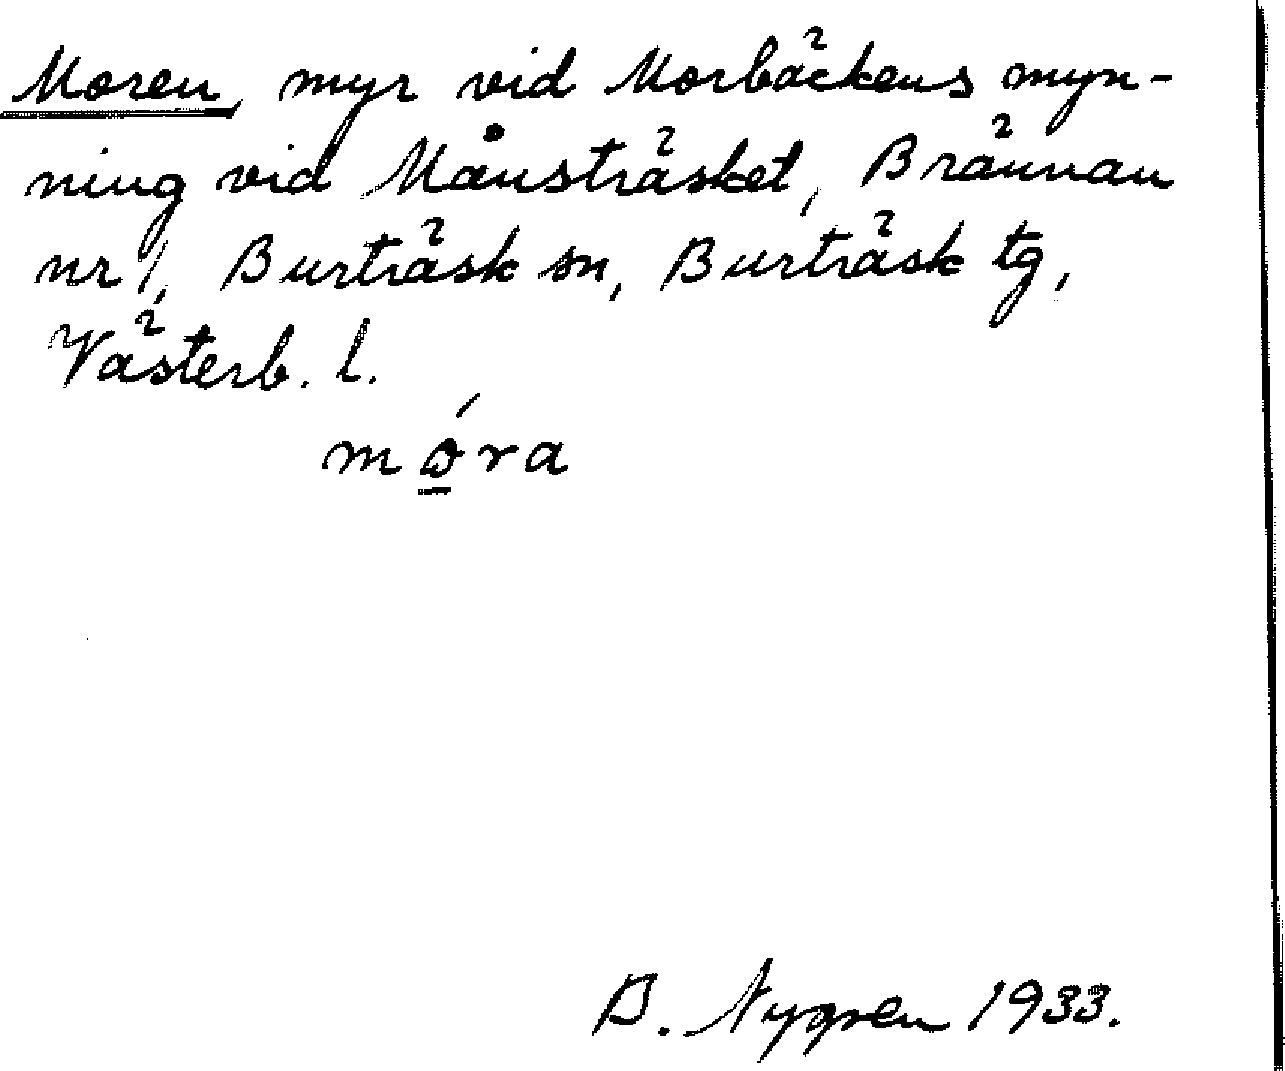 Moren, myr vid Morbäckens myn-
ning vid Månsträsket, Brännan
nr 1, Burträsk sn, Burträsk tg,
Västerb. l.
mó̲ra
B. Nygren 1933.